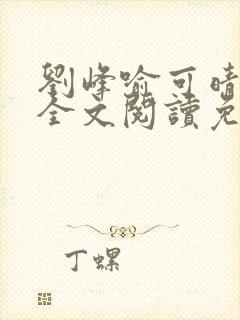 劉峰喻可晴
全文閱讀免
丁螺